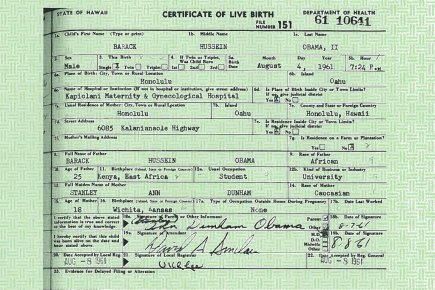 STATE OF HAWAII CERTIFICATE OF LIVE BIRTH DEPARTMENT OF HEALTH
FILE NUMBER 151 61 10641
1a. Child's First Name (Type or print) 1b. Middle Name 1c. Last Name
BARACK HUSSEIN OBAMA, II
2. Sex 3. This Birth 4. If Twin or Triplet, Was Child Born 5a. Birth Date Month Day Year 5b. Hour
Male Single Twin Triplet 1st 2nd 3rd August 4, 1961 7:24 P.M.
6a. Place of Birth: City, Town or Rural Location 6b. Island
Honolulu Oahu
6c. Name of Hospital or Institution (If not in hospital or institution, give street address) 6d. Is Place of Birth Inside City or Town Limits? If no, give judicial district
Kapiolani Maternity & Gynecological Hospital Yes No
7a. Usual Residence of Mother: City, Town or Rural Location 7b. Island 7c. County and State or Foreign Country
Honolulu Oahu Honolulu, Hawaii
7d. Street Address 7e. Is Residence Inside City or Town Limits? If no, give judicial district
6085 Kalanianaole Highway Yes No
7f. Mother's Mailing Address 7g. Is Residence on a Farm or Plantation?
Yes No
8. Full Name of Father 9. Race of Father
BARACK HUSSEIN OBAMA African
10. Age of Father 11. Birthplace 12a. Usual Occupation 12b. Kind of Business or Industry
25 Kenya, East Africa Student University
13. Full Maiden Name of Mother 14. Race of Mother
STANLEY ANN DUNHAM Caucasian
15. Age of Mother 16. Birthplace 17a. Type of Occupation Outside Home During Pregnancy 17b. Date Last Worked
18 Wichita, Kansas None
I certify that the above stated information is true and correct to the best of my knowledge. 18a. Signature of Parent or Other Informant Parent Other 18b. Date of Signature
Dunham Obama 8-7-61
I hereby certify that this child was born alive on the date and hour stated above. 19a. Signature of Attendant M.D. D.O. Midwife Other 19b. Date of Signature
David A Sinclair 8-8-61
20. Date Accepted by Local Reg. 21. Signature of Local Registrar 22. Date Accepted by Reg. General
AUG -8 1961 AUG -8 1961
23. Evidence for Delayed Filing or Alteration